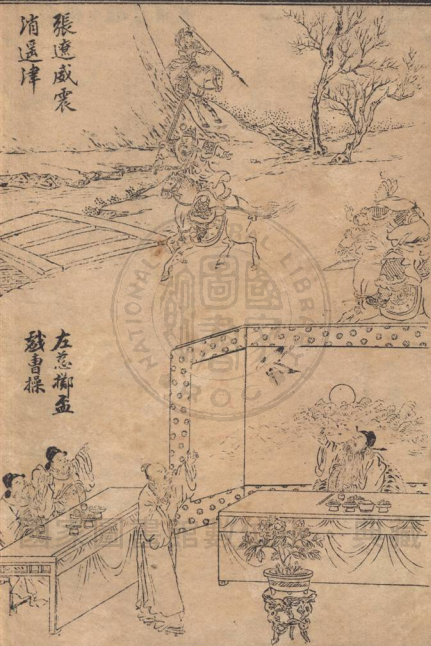 張遼威震
逍遥津
左慈擲盃
戲曹操
NATIONAL CENTRAL LIBRARY
R.O.C.
國家圖書館